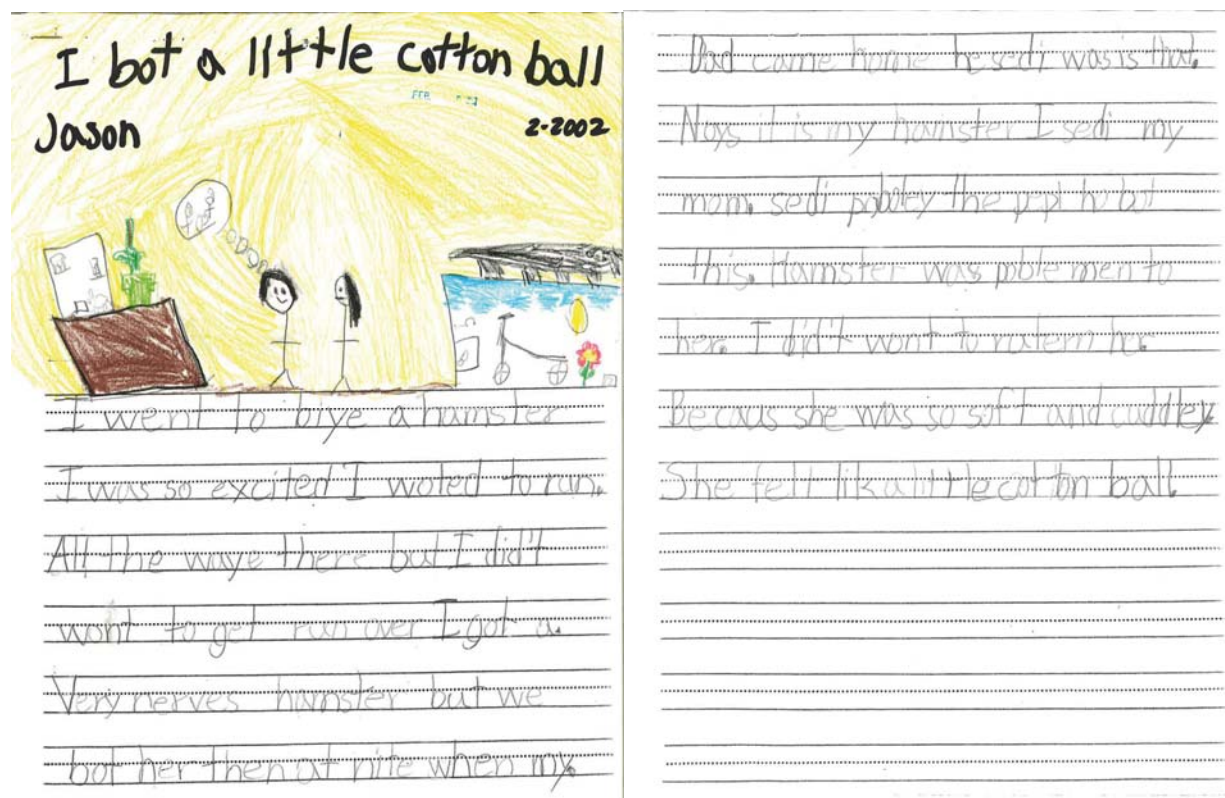 I bot a little cotton ball
Jason
2-2002
I went to biye a hamster
I was so excited I woted to run.
All the waye there but I did't
wont to get run over I got a.
Very nerves hamster but we
bot her then at nite when my.
Dad came home he sedi was is that.
Noys it is my hamster I sedi my
mom. sedi poboley the pepl ho bot
this. Hamster was poble men to
her. I did't wont to rutern her.
Becaus she was so soft and cuddley
She fell lik a little cotton ball.